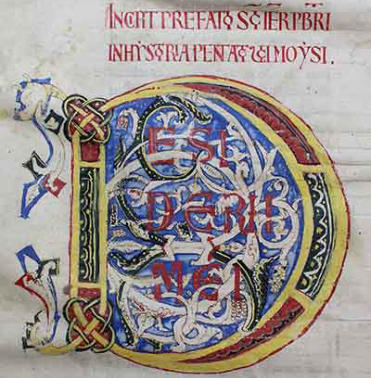 INCIPIT PREFATIO SCI IERI PBRI
IN HYSTORIA PENTATEUCI MOYSI.
D
ESI
DERII
MEI